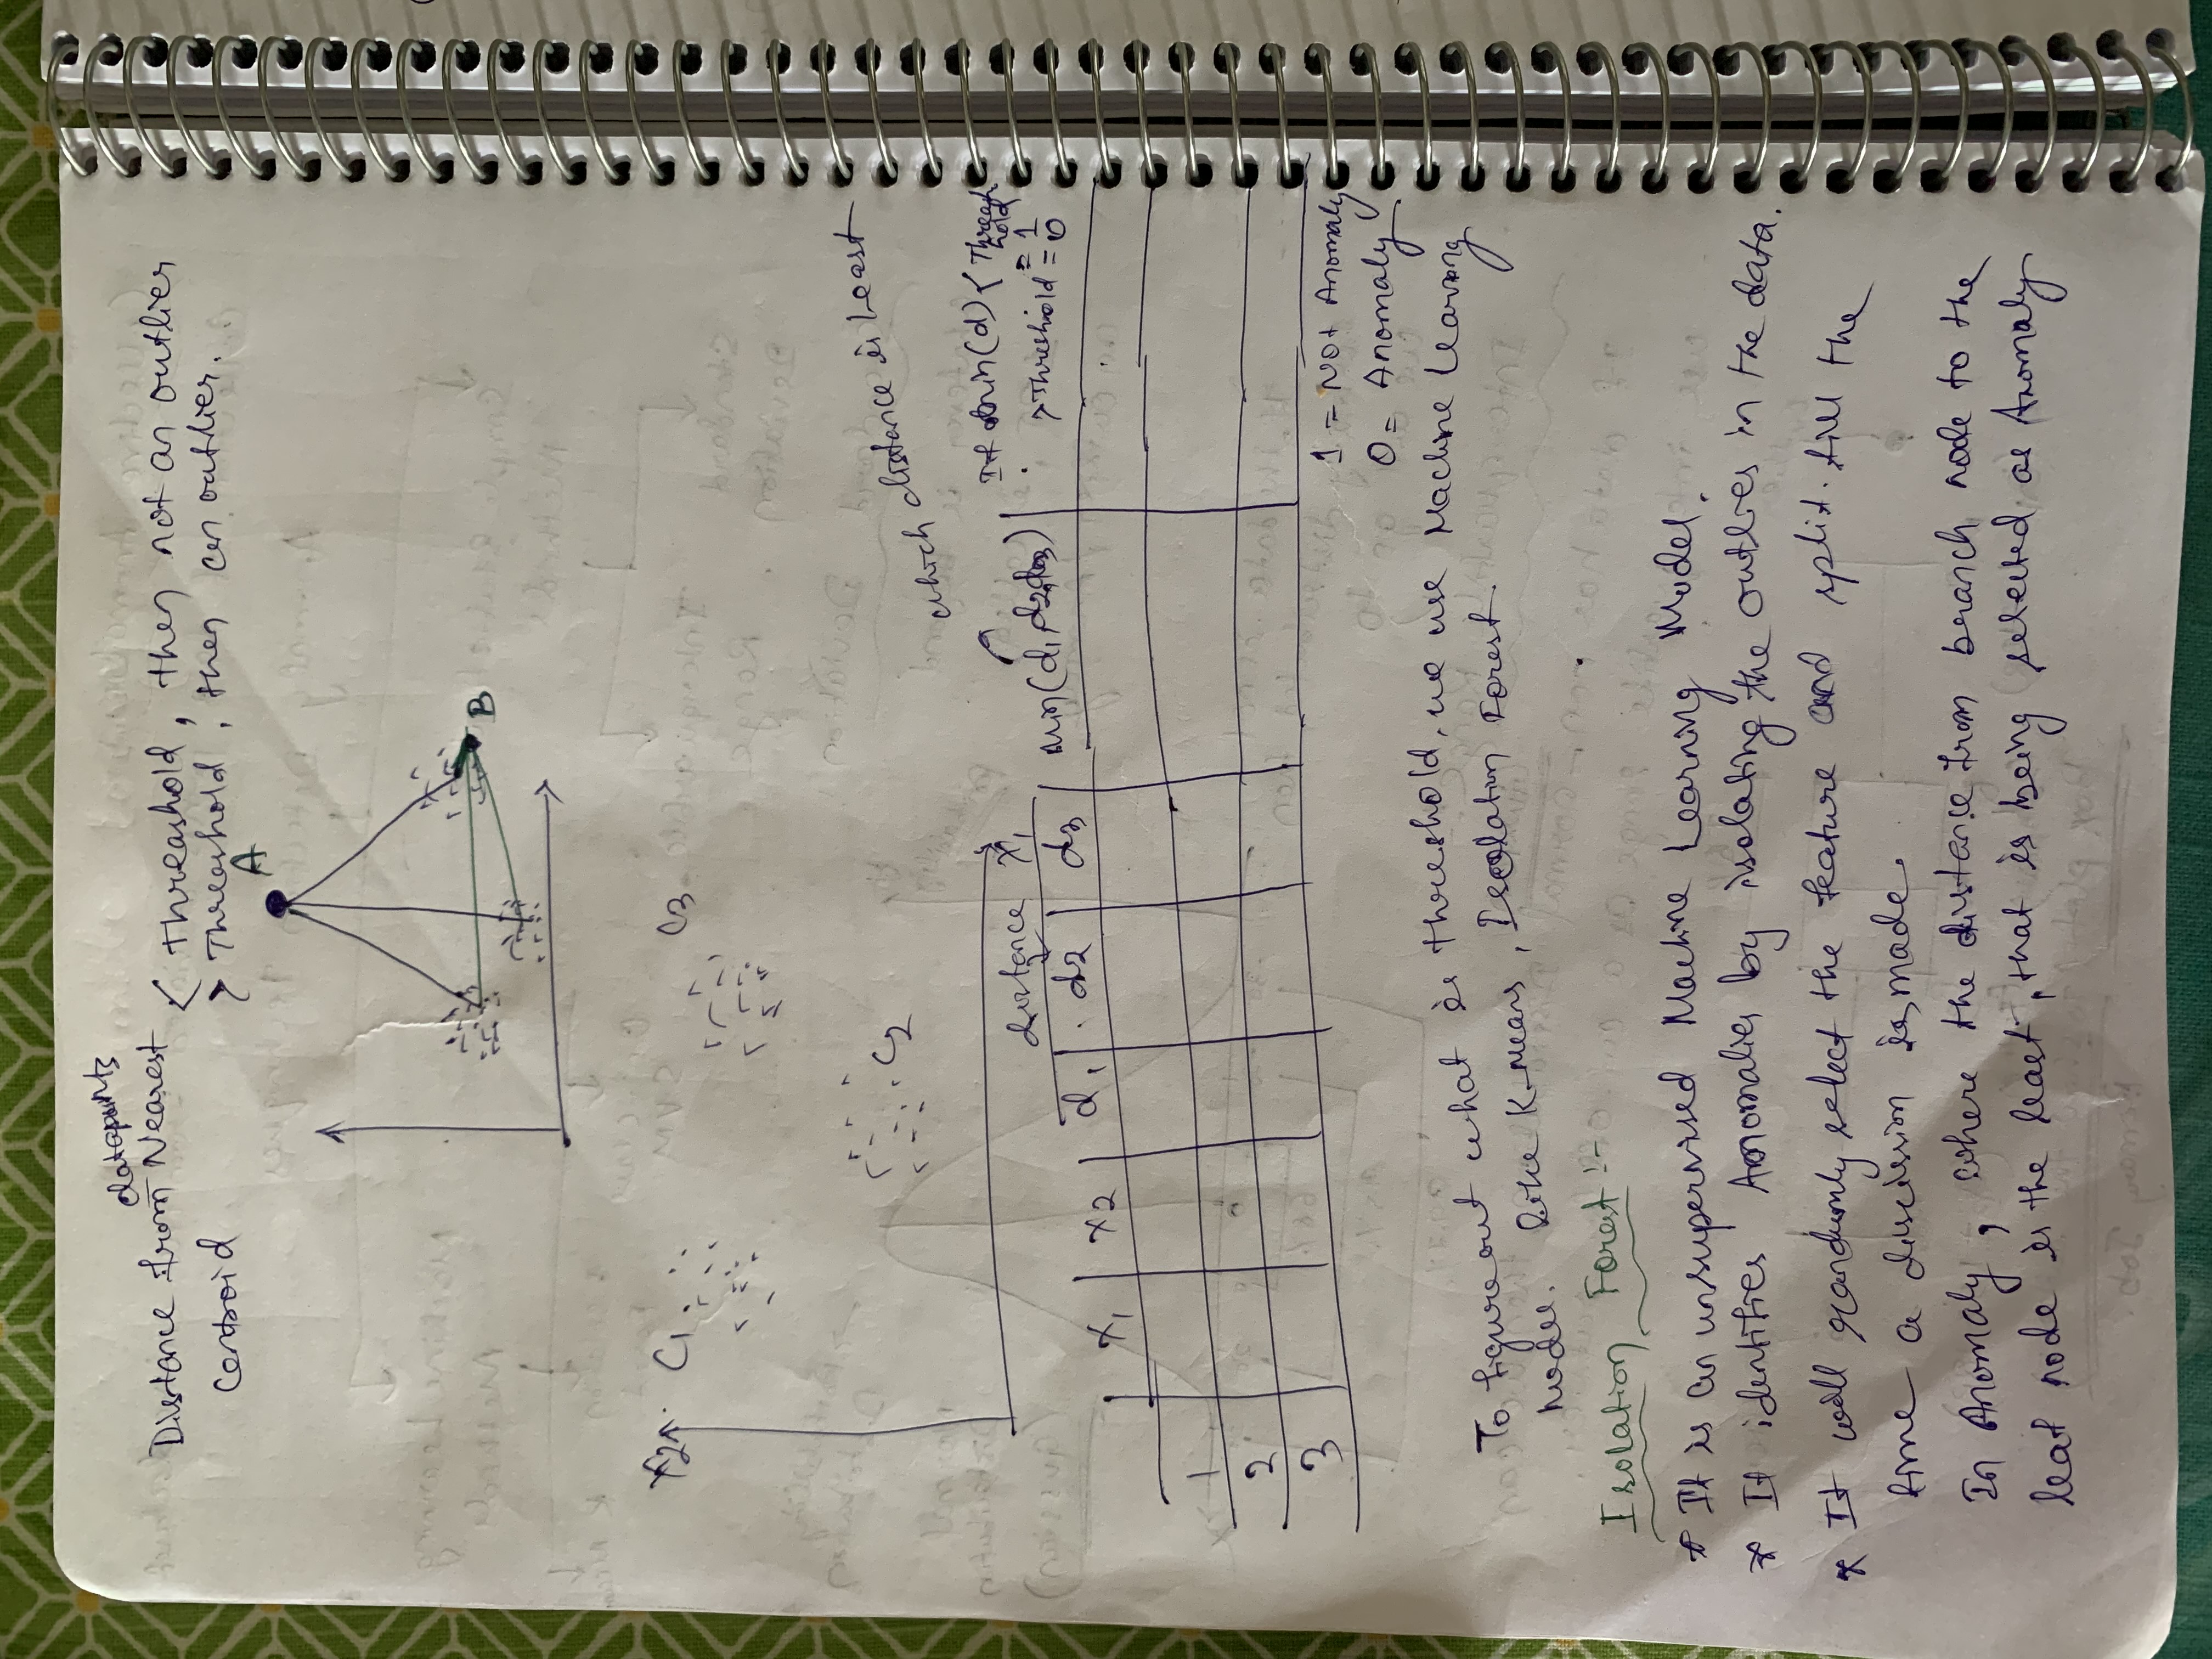 datapoints
Distance from Nearest < Threashold, then not an outlier
Centroid > Threashold, then an outlier.
A
B
X2 C1 C3
C2
which distance is Least
distance X1
If Min(d) < Threashold = 1
> Threshold = 0
X1 X2 d1 d2 d3 Min(d1, d2, d3)
1
2
3
1 = Not Anomaly
0 = Anomaly
To figure out what is threshold, we use Machine Learning
Model. like K-Means, Isolation Forest.
Isolation Forest :-
* It is an unsupervised Machine Learning Model.
* It identifies Anomalies by isolating the outlies in the data.
* It will randomly select the feature and split. till the
time a discission is made.
In Anomaly, where the distance from branch node to the
leaf node is the least, that is being selected as Anomaly